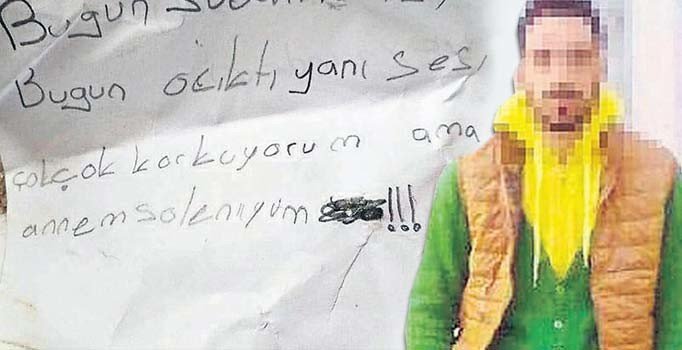 Bugun
Bugun acıktı yanı sesı
çokçok korkuyorum ama
annem solenıyum !!!